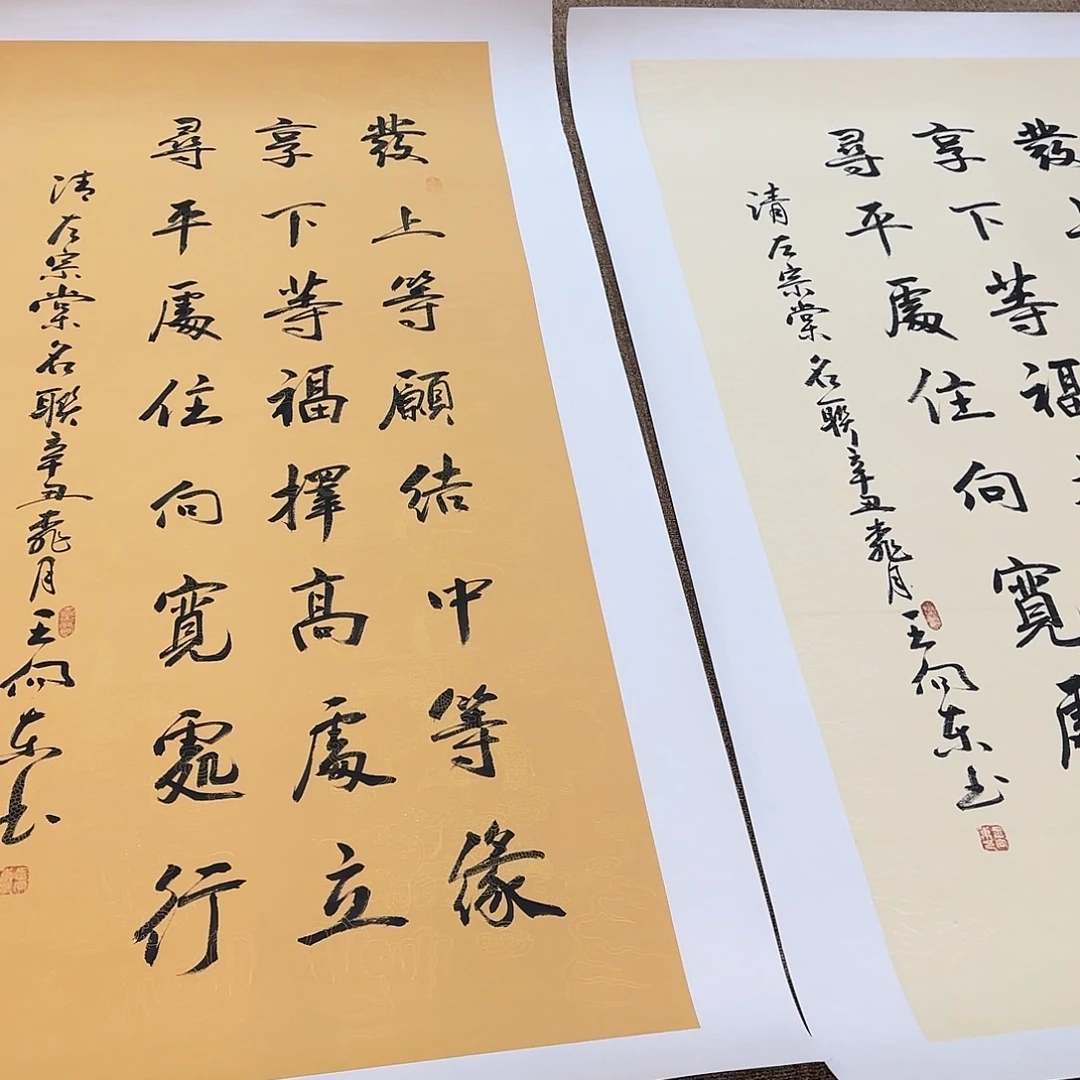 發上等願結中等緣
享下等福擇高處立
尋平處住向寬處行
清左宗棠名聯辛丑月王向东书
發上
享下等福
尋平處住向寬處
清左宗棠名聯辛丑月王向东书